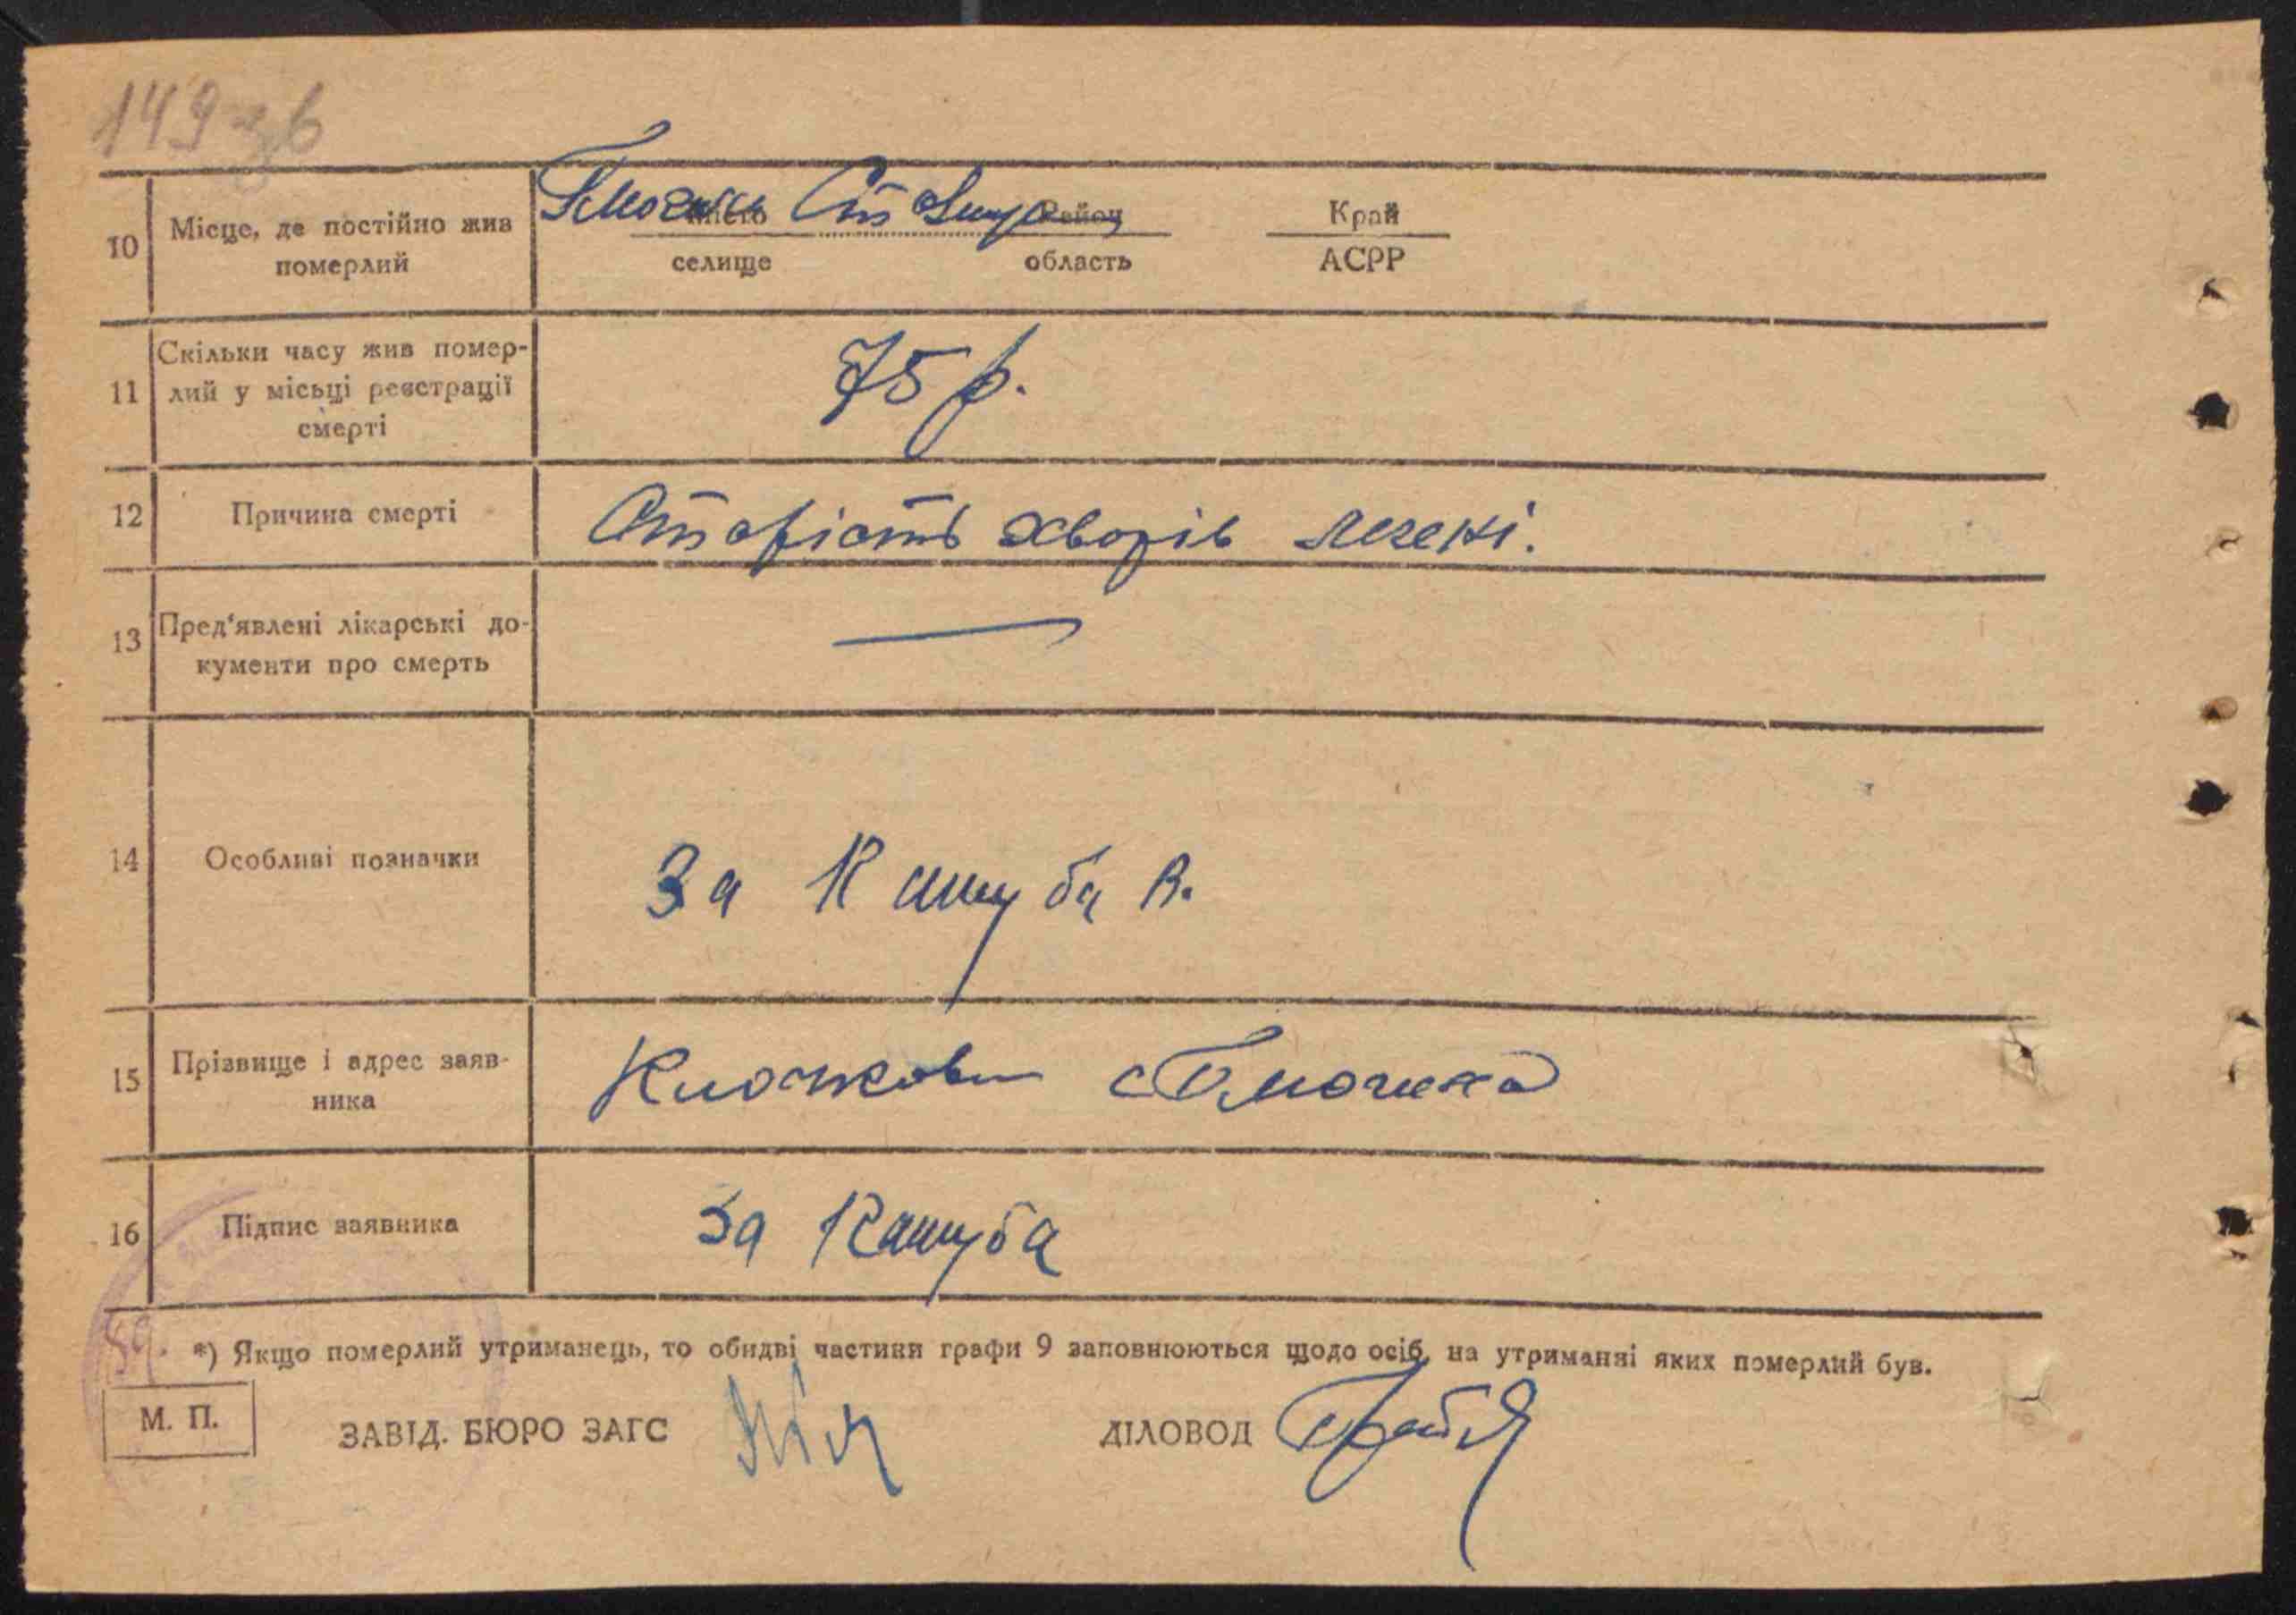 149 зв
10 Місце, де постійно жив померлий
місто Район Край
селище область АСРР
11 Скільки часу жив помер-
лий у місьці реєстрації
смерті
75 р.
12 Причина смерті
Старість хворів легені.
13 Пред'явлені лікарські до-
кументи про смерть
14 Особливі позначки
За Кашуба В.
15 Прізвище і адрес заяв-
ника
16 Підпис заявника
За Кашуба
*) Якщо померлий утриманець, то обидві частини графи 9 заповнюються щодо осіб, на утриманні яких померлий був.
М. П.
ЗАВІД. БЮРО ЗАГС ДІЛОВОД